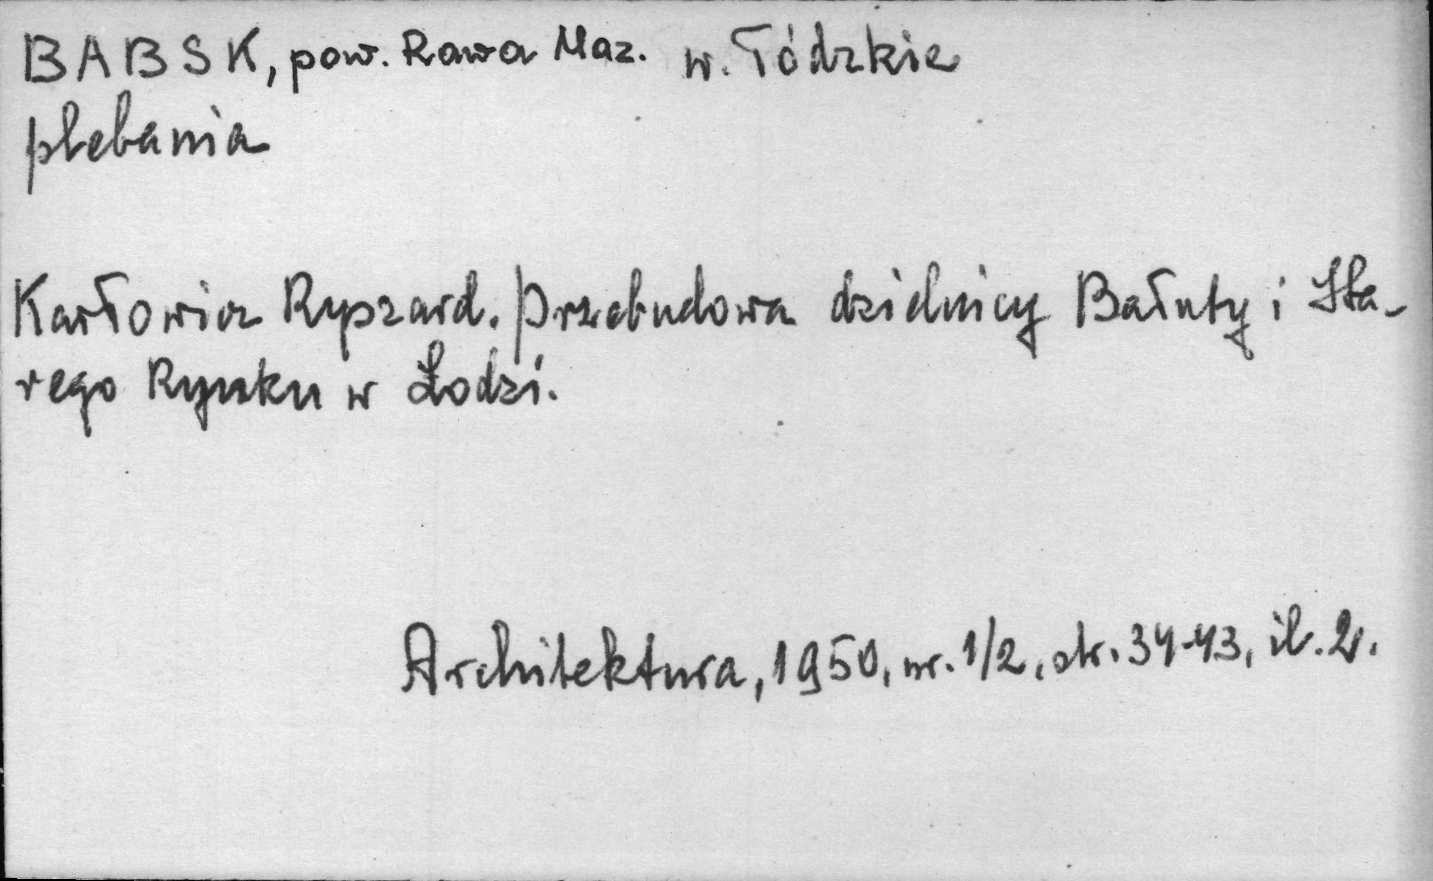 BABSK, pow. Rawa Maz. w. łódzkie
plebania
Karłowicz Ryszard. Przebudowa dzielnicy Bałuty i Sta-
rego Rynku w Łodzi.
Architektura, 1950, nr. 1/2, str. 34-43, il. 2.